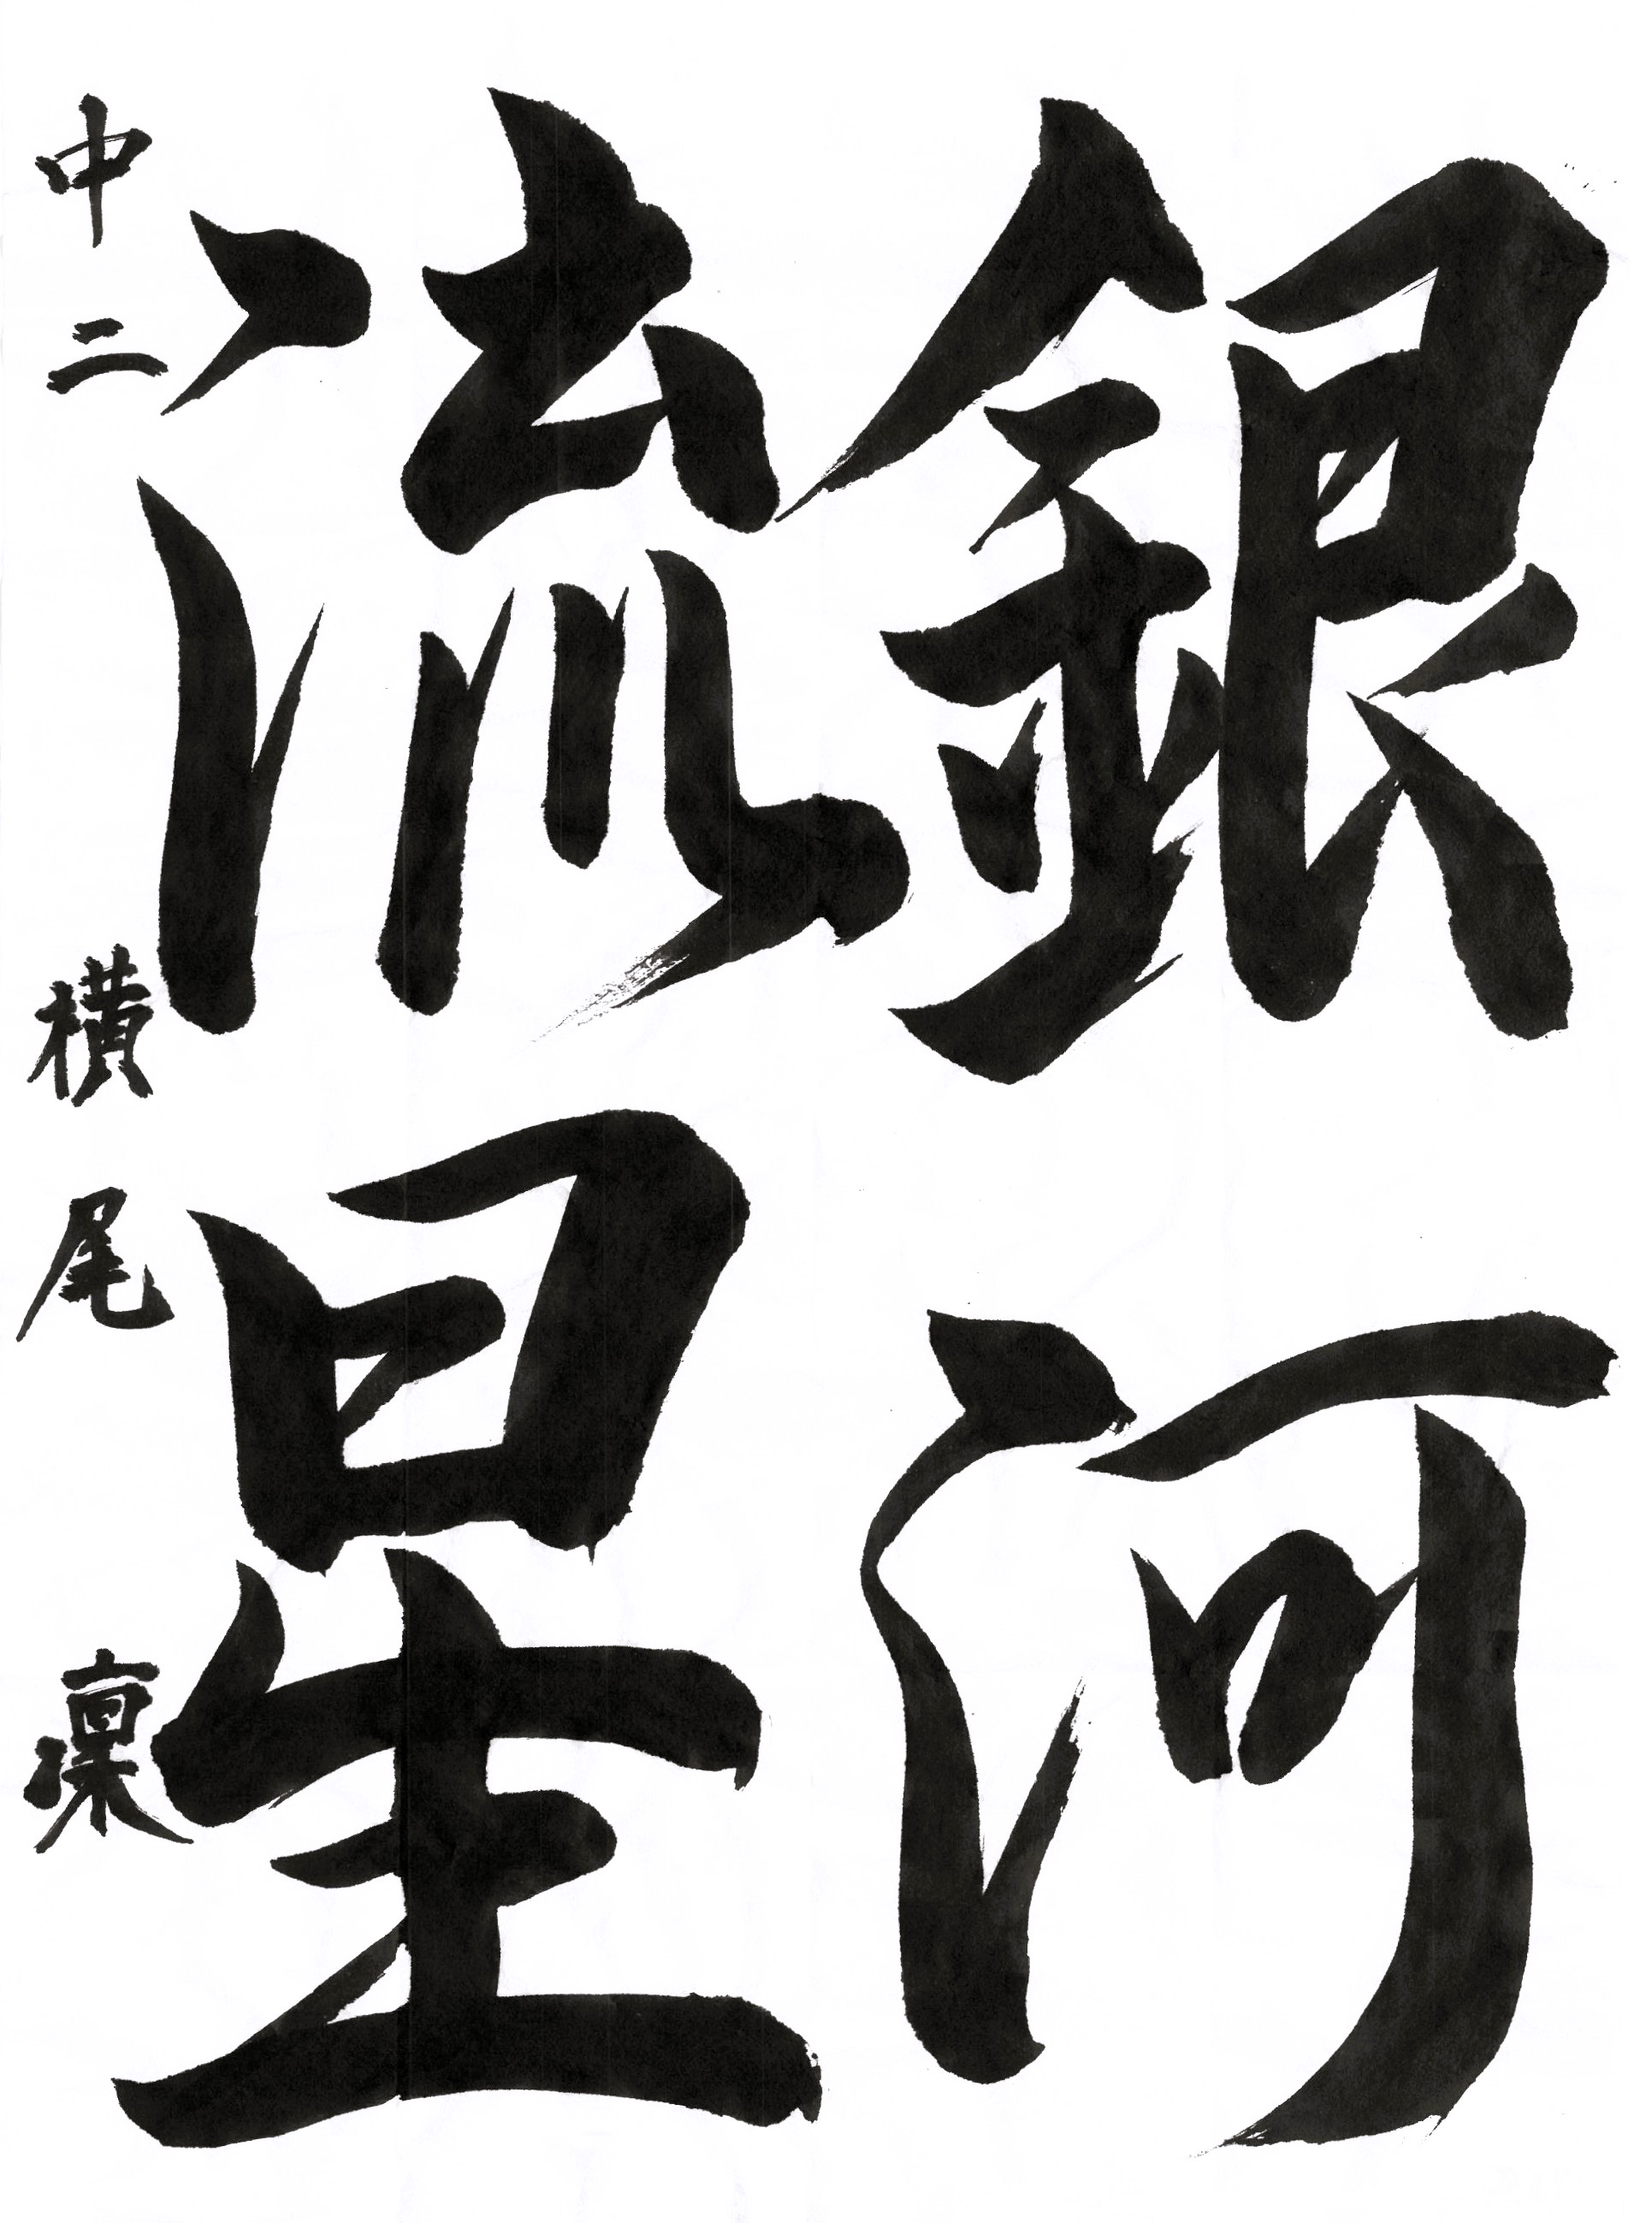 銀河
流星
中二 横尾 凜